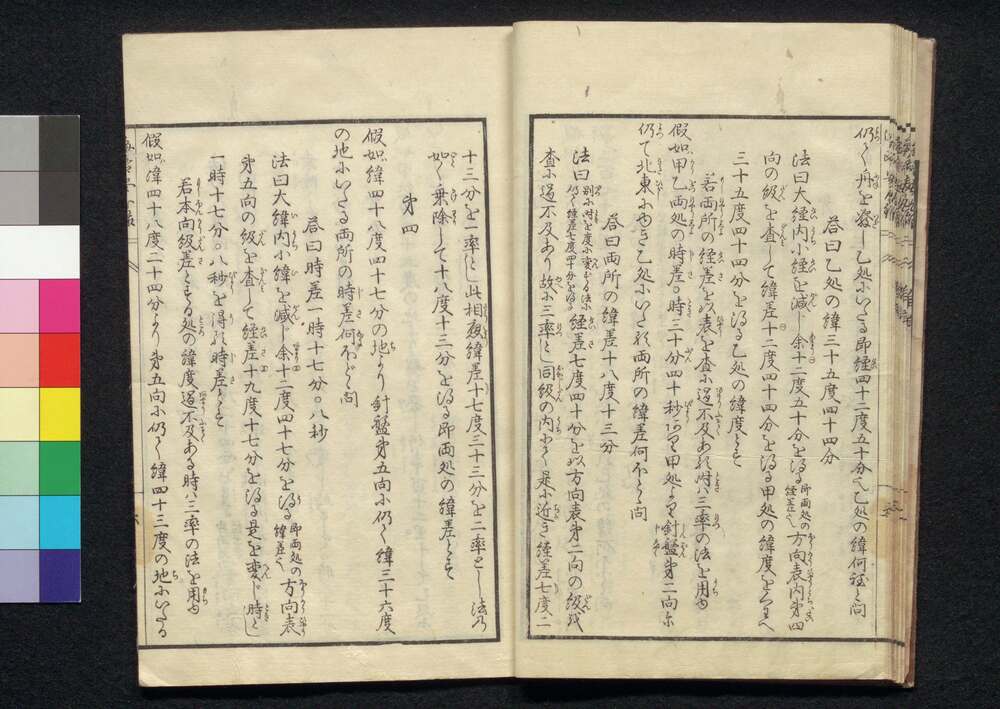 仍て舟を發し乙処にいたる即経四十二度五十分へ乙処の緯何程と問
答曰乙処の緯三十五度四十四分
法曰大経内小経を減じ余十二度五十分を得る即両処の経差也方向表内第四
向の級を査して緯差十二度四十四分を得る甲処の緯度をくわへ
三十五度四十四分を得る乙処の緯度とす
若両所の経差を以表を査に過不及ある時ハ三率の法を用ゆ
假如甲乙両処の時差〇時三十分四十秒 甲処より針盤第二向に
仍て北東にゆき乙処にいたる両所の緯差何ほどと問
答曰両所の緯差十八度十三分
法曰 経差七度四十分を以方向表第二向の級或
査に過不及あり故に三率とし同級の内にて是に近き経差七度二
十三分を一率とし此相観緯差十七度三十三分を二率とし法乃
如く乗除して十八度十三分を得る即両処の緯差とす
第四
假如緯四十八度四十七分の地より針盤第五向に仍て緯三十六度
の地にいたる両所の時差何ほどと問
答曰時差一時十七分〇八秒
法曰大緯内小緯を減じ余十二度四十七分を得る即両処の緯差也方向表
第五向の級を査して経差十九度十七分を得る是を変じ時とし
一時十七分〇八秒を得る時差とす
若本向級差とする処の緯度過不及ある時ハ三率の法を用ゆ
假如緯四十八度二十四分より第五向に仍て緯四十三度の地にいたる